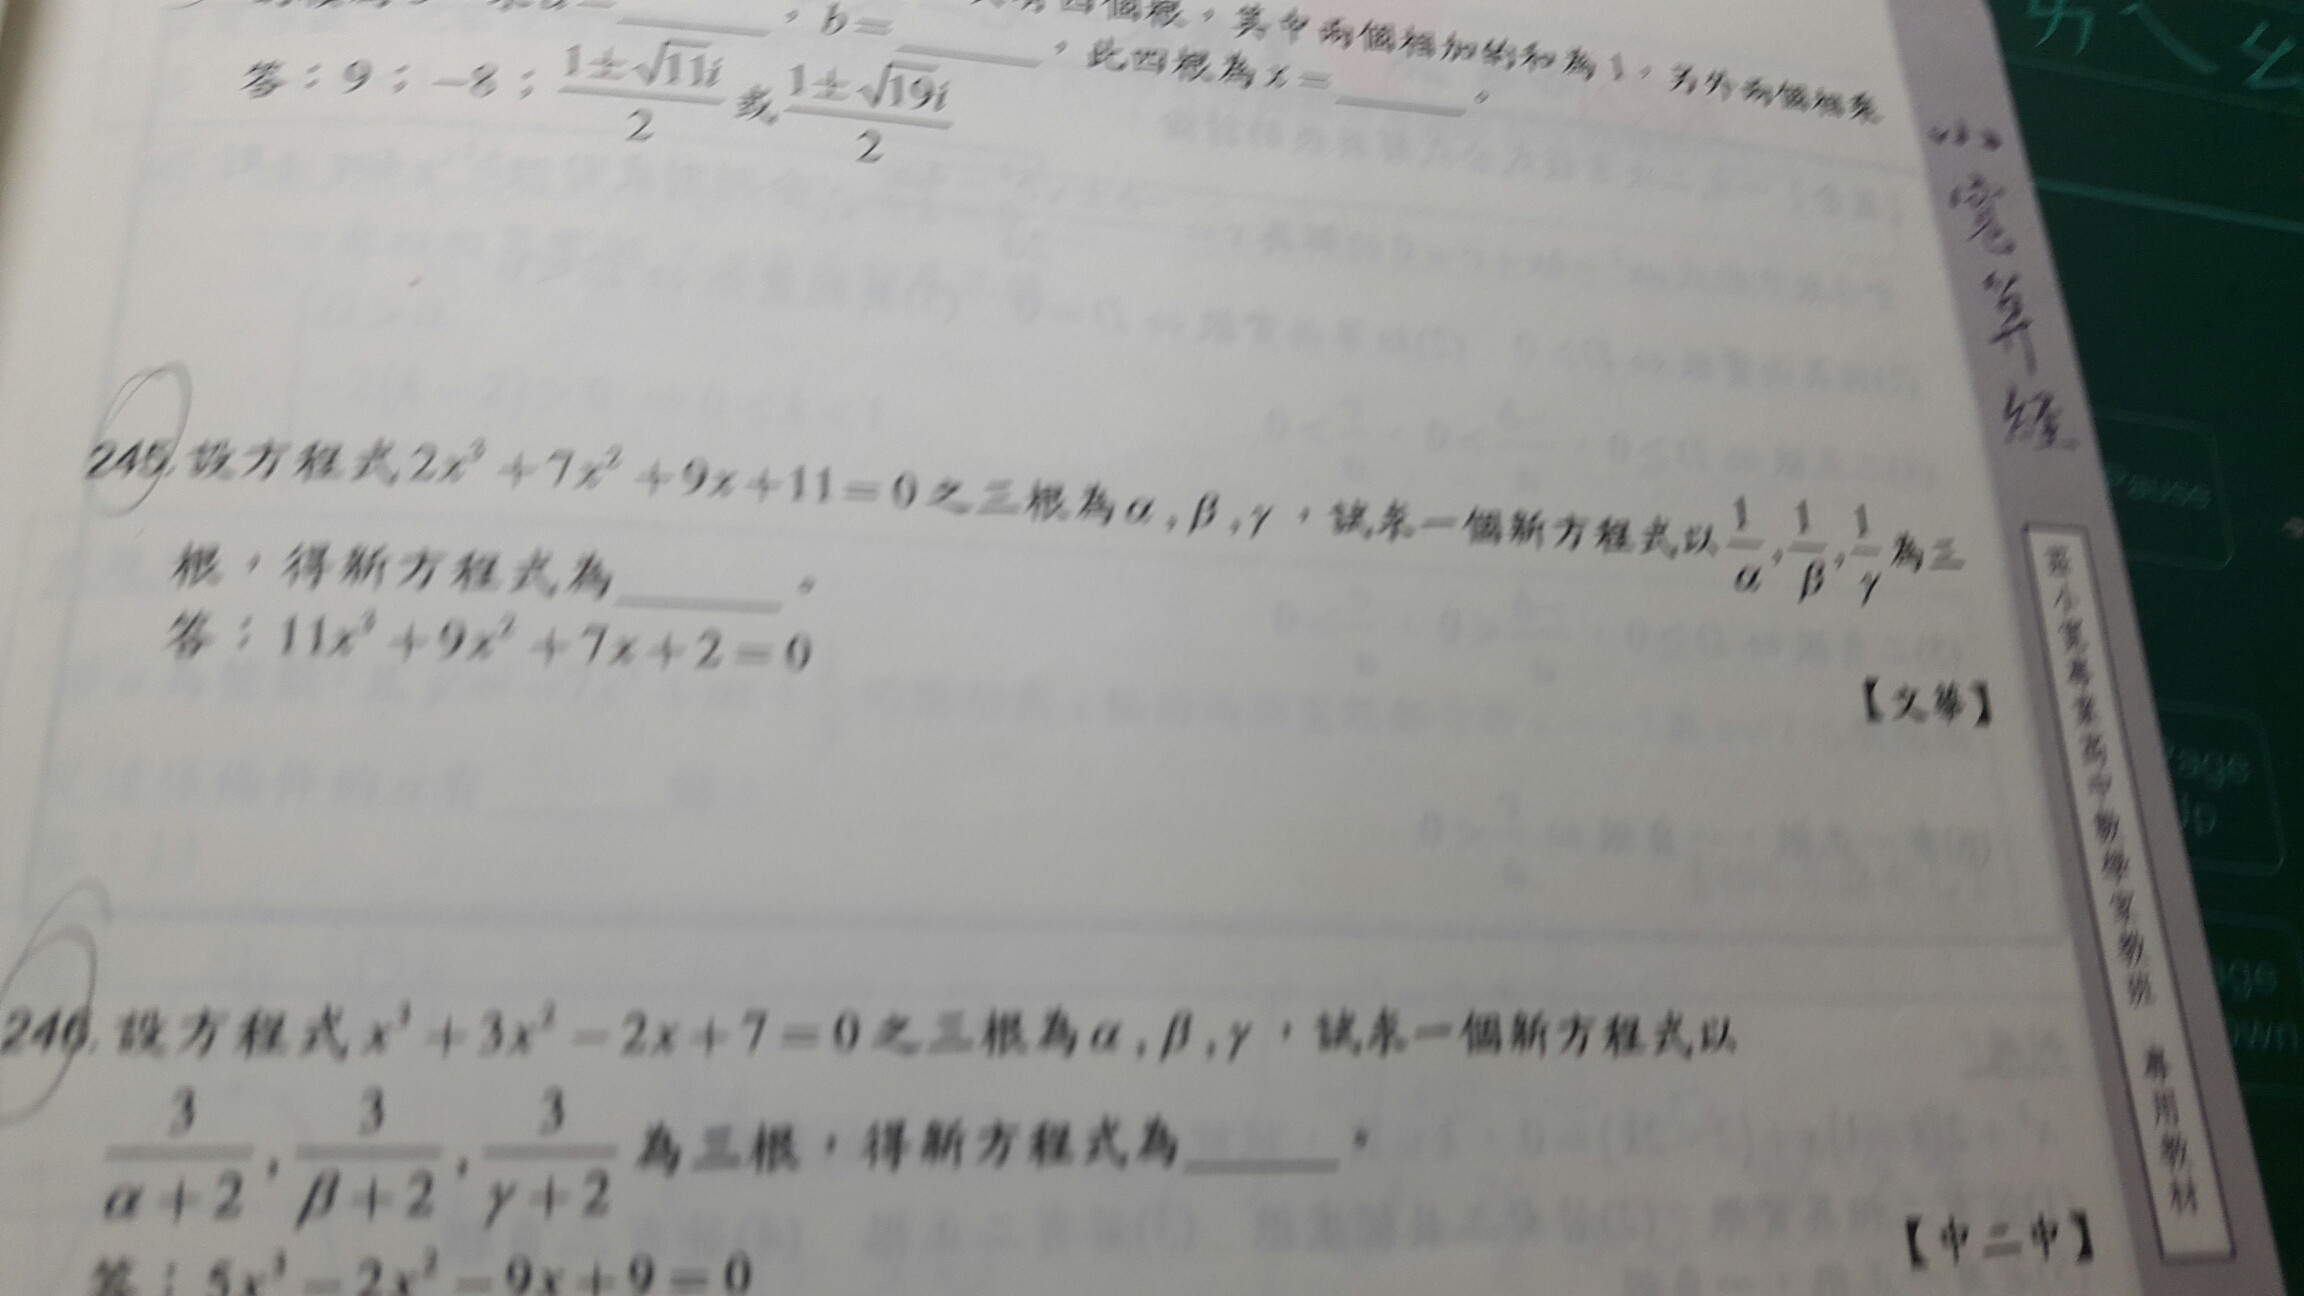 ，b=
四個根，其中兩個根加的和為1，另外兩個根
，此四根為x=
。
答：9；-8；(1±√11i)/2 或 (1±√19i)/2
245.設方程式2x³+7x²+9x+11=0之三根為α,β,γ，試求一個新方程式以1/α,1/β,1/γ為三
根，得新方程式為______。
答：11x³+9x²+7x+2=0
【文華】
246.設方程式x³+3x²-2x+7=0之三根為α,β,γ，試求一個新方程式以
3/(α+2),3/(β+2),3/(γ+2)為三根，得新方程式為______。
【中二中】
答：5x³-2x²-9x+9=0
小寬算經
高中數學家教班 專用教材
Pause
Page
Up